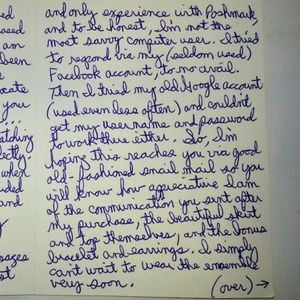 and only experience with Poshmark,
and to be honest, I'm not the
most savvy computer user. I tried
to respond via my (seldom used)
Facebook account, to no avail.
Then I tried my old Google account
(used even less often) and couldn't
get my username and password
to work there either. So, I'm
hoping this reaches you via good
old-fashioned snail mail so you
will know how appreciative I am
of the communication you sent after
my purchase, the beautiful skirt
and top themselves, and the bonus
bracelet and earrings. I simply
can't wait to wear the ensemble
very soon.
(over) →